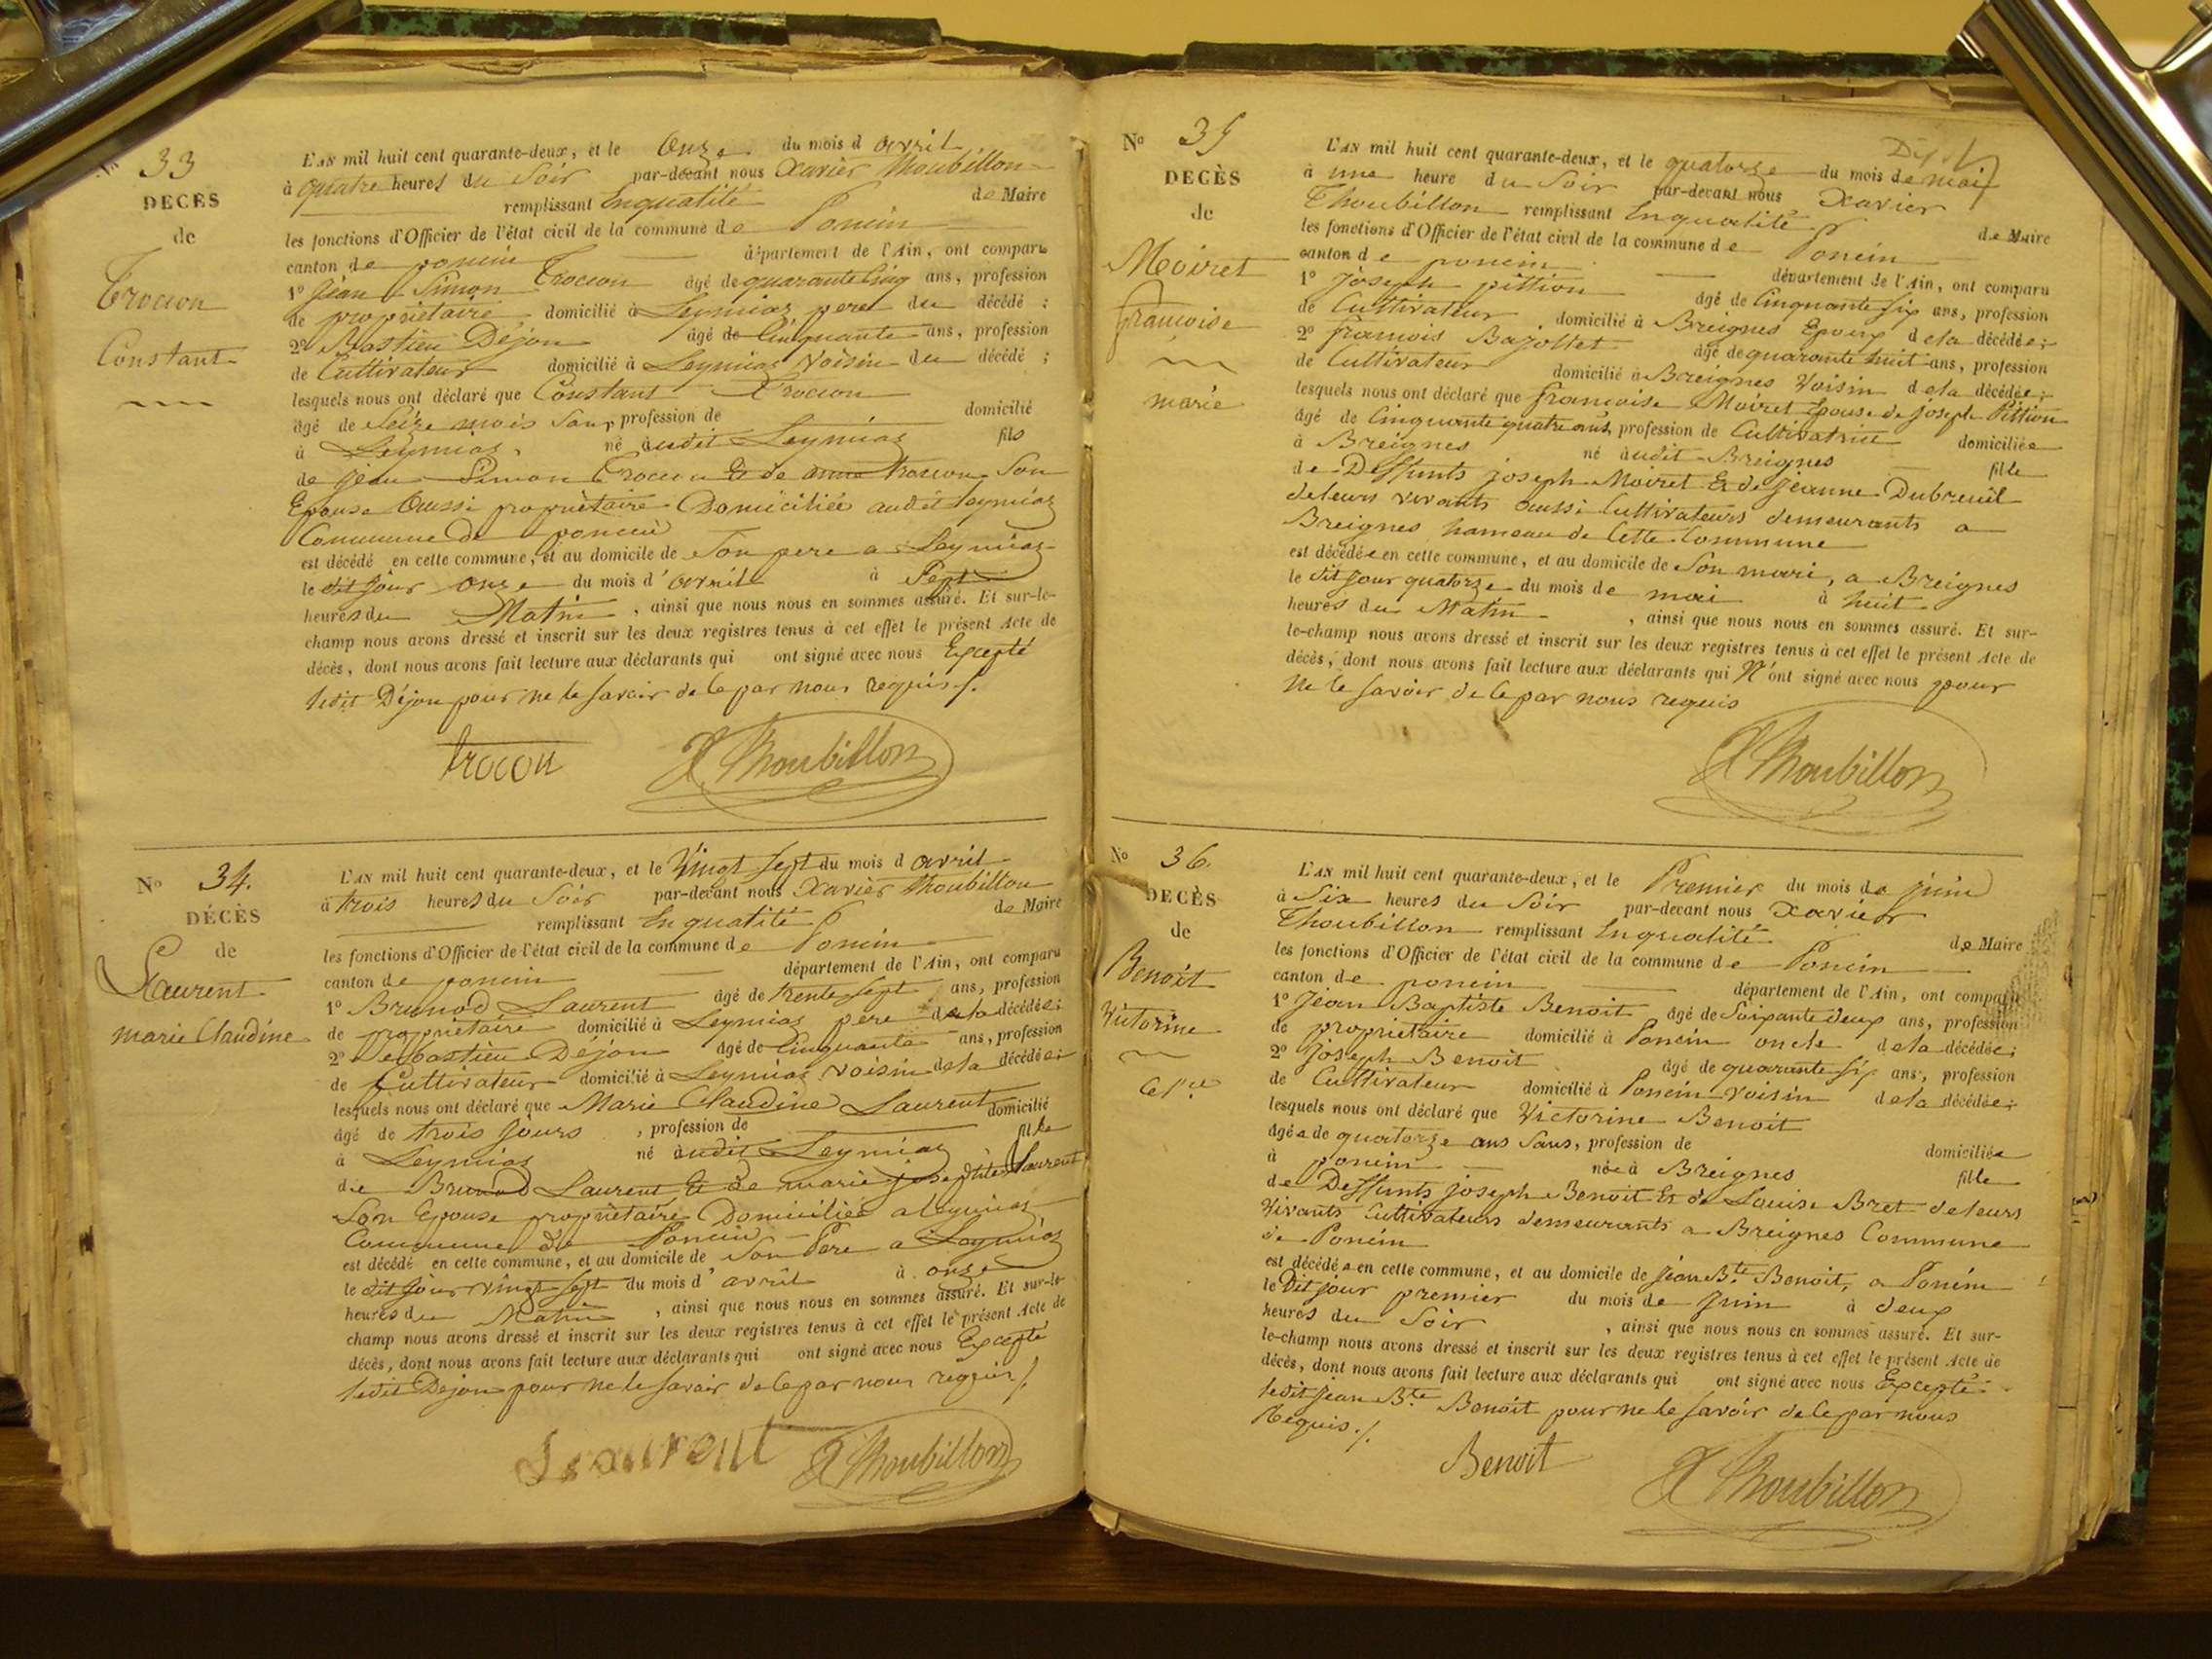 33
DECES
de
Trocon
Constant
L'AN mil huit cent quarante-deux, et le Onze du mois d avril
à quatre heures du Soir par-devant nous Xavier Thoubillon
remplissant Enqualité de Maire
les fonctions d'Officier de l'état civil de la commune de Poncin
canton de poncin département de l'Ain, ont comparu
1° Jean Simon Trocon âgé de quarante Cinq ans, profession
de propriétaire domicilié à Leymiaz pere du décédé ;
2° Bastien Déjon âgé de Cinquante ans, profession
de Cultivateur domicilié à Leymiaz Voisin du décédé ;
lesquels nous ont déclaré que Constant Trocon
âgé de Seize mois Sans profession de domicilié
à Leymiaz, né audit Leymiaz fils
de Jean Simon Trocon Et de anne trocon Son
Epouse Aussi propriétaire Domiciliée audit Leymiaz
Commune de poncin
est décédé en cette commune, et au domicile de Son pere a Leymiaz
le dit jour onze du mois d'avril à Sept
heures du Matin, ainsi que nous nous en sommes assuré. Et sur-le-
champ nous avons dressé et inscrit sur les deux registres tenus à cet effet le présent Acte de
décès, dont nous avons fait lecture aux déclarants qui ont signé avec nous Excepté
ledit Déjon pour ne le savoir de ce par nous requis ./.
trocon X Thoubillon
N° 34.
DÉCÈS
de
Laurent
marie Claudine
L'AN mil huit cent quarante-deux, et le Vingt Sept du mois d avril
à trois heures du Soir par-devant nous Xavier Thoubillon
remplissant Enqualité de Maire
les fonctions d'Officier de l'état civil de la commune de Poncin
canton de poncin département de l'Ain, ont comparu
1° Brunod Laurent âgé de trente Sept ans, profession
de propriétaire domicilié à Leymiaz pere de la décédée ;
2° Sebastien Déjon âgé de Cinquante ans, profession
de Cultivateur domicilié à Leymiaz voisin de la décédée ;
lesquels nous ont déclaré que Marie Claudine Laurent domicilié
âgé de trois jours, profession de fille
à Leymiaz né audit Leymiaz
de Brunod Laurent Et de marie josephte Laurent
Son Epouse propriétaire Domiciliée a Leymiaz
Commune de Poncin
est décédé en cette commune, et au domicile de Son Pere a Leymiaz
le dit jour vingt Sept du mois d'avril à onze
heures du Matin, ainsi que nous nous en sommes assuré. Et sur-le-
champ nous avons dressé et inscrit sur les deux registres tenus à cet effet le présent Acte de
décès, dont nous avons fait lecture aux déclarants qui ont signé avec nous Excepté
ledit Dejon pour ne le savoir de ce par nous requis ./.
Laurent X Thoubillon
N° 35
DECÈS
de
Moiret
françoise
marie
L'AN mil huit cent quarante-deux, et le quatorze du mois de mai
à une heure du Soir par-devant nous Xavier
Thoubillon remplissant Enqualité de Maire
les fonctions d'Officier de l'état civil de la commune de Poncin
canton de poncin département de l'Ain, ont comparu
1° Joseph pittion âgé de Cinquante Six ans, profession
de Cultivateur domicilié à Breignes Epoux de la décédée ;
2° françois Bajollet âgé de quarante huit ans, profession
de Cultivateur domicilié à Breignes Voisin de la décédée ;
lesquels nous ont déclaré que françoise Moiret Epouse de joseph Pittion
âgé de Cinquante quatre ans, profession de Cultivatrice domiciliée
à Breignes né audit Breignes fille
de Deffunts joseph Moiret Et de Jeanne Dubreuil
de leurs vivants aussi Cultivateurs demeurants a
Breignes hameau de Cette Commune
est décédée en cette commune, et au domicile de Son mari, a Breignes
le dit jour quatorze du mois de mai à huit
heures du Matin, ainsi que nous nous en sommes assuré. Et sur-
le-champ nous avons dressé et inscrit sur les deux registres tenus à cet effet le présent Acte de
décès, dont nous avons fait lecture aux déclarants qui N'ont signé avec nous pour
ne le savoir de ce par nous requis
X Thoubillon
N° 36.
DECÈS
de
Benoit
Victorine
Cel.re
L'AN mil huit cent quarante-deux, et le Premier du mois de juin
à Six heures du Soir par-devant nous Xavier
Thoubillon remplissant Enqualité de Maire
les fonctions d'Officier de l'état civil de la commune de Poncin
canton de poncin département de l'Ain, ont comparu
1° Jean Baptiste Benoit âgé de Soixante deux ans, profession
de proprietaire domicilié à Poncin oncle de la décédée ;
2° Joseph Benoit âgé de quarante Six ans, profession
de Cultivateur domicilié à Poncin Voisin de la décédée ;
lesquels nous ont déclaré que Victorine Benoit
âgée de quatorze ans Sans, profession de domiciliée
à poncin née à Breignes fille
de Deffunts joseph Benoit Et de Louise Bret de leurs
Vivants Cultivateurs demeurants a Breignes Commune
de Poncin
est décédée en cette commune, et au domicile de Jean Bte Benoit, a Poncin
le Dit jour premier du mois de Juin à deux
heures du Soir, ainsi que nous nous en sommes assuré. Et sur-
le-champ nous avons dressé et inscrit sur les deux registres tenus à cet effet le présent Acte de
décès, dont nous avons fait lecture aux déclarants qui ont signé avec nous Excepté
ledit Jean Bte Benoit pour ne le savoir de ce par nous
Requis ./.
Benoit X Thoubillon